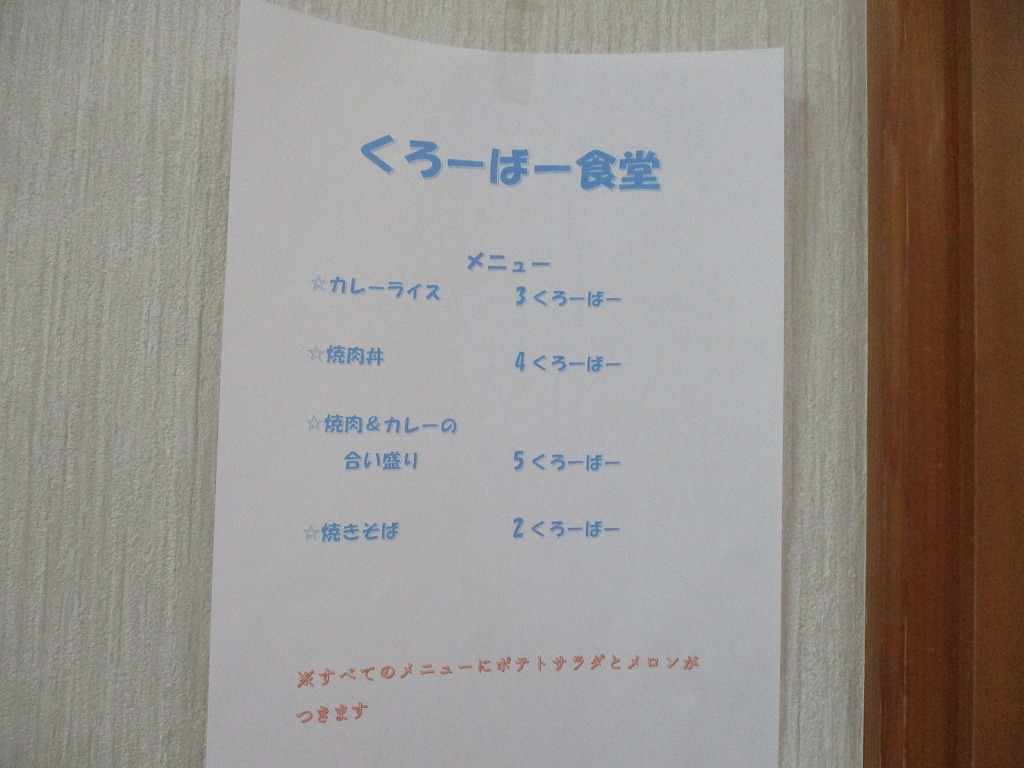 くろーばー食堂
メニュー
☆カレーライス 3くろーばー
☆焼肉丼 4くろーばー
☆焼肉&カレーの
合い盛り 5くろーばー
☆焼きそば 2くろーばー
※すべてのメニューにポテトサラダとメロンが
つきます